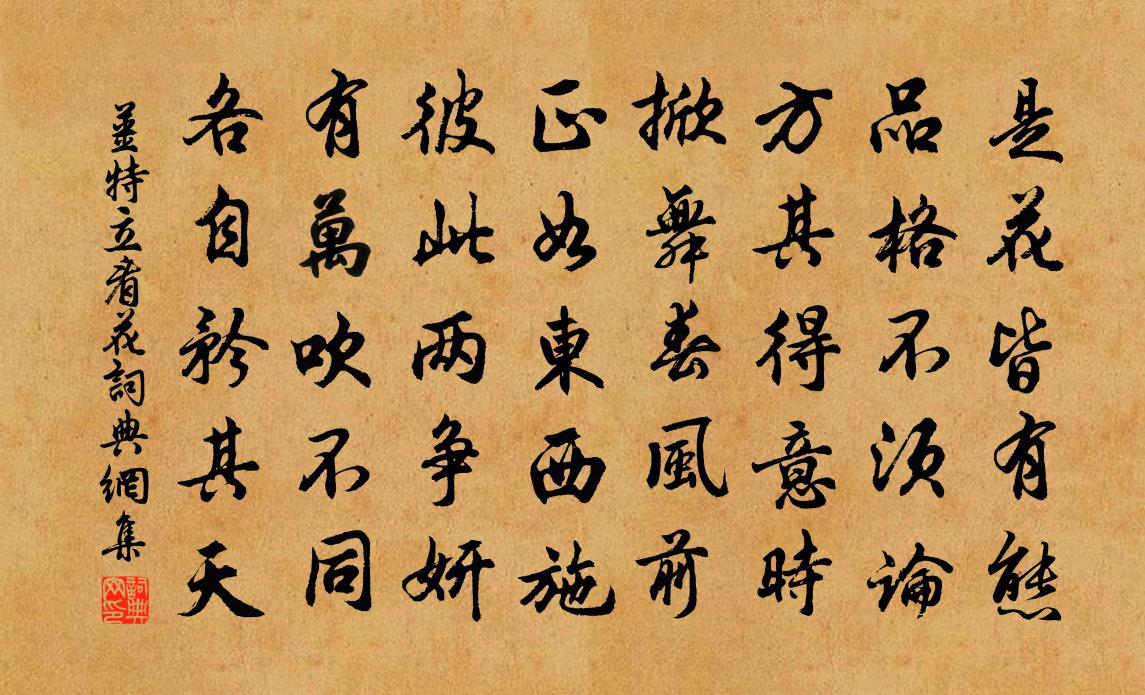 是花皆有態
品格不須論
方其得意時
掀舞春風前
正如東西施
彼此両爭妍
有萬吹不同
各自矜其天
姜特立看花詞典網集
詞典網印